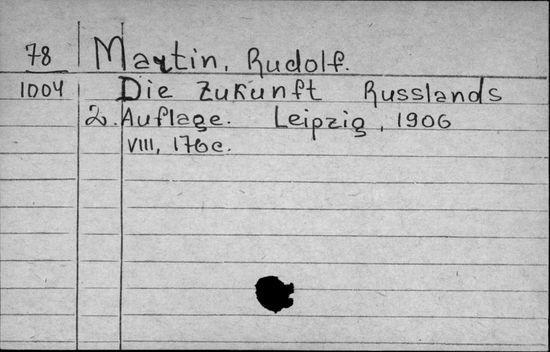 78 Martin, Rudolf.
1004 Die Zukunft Russlands
2. Auflage. Leipzig, 1906
VIII, 176 c.